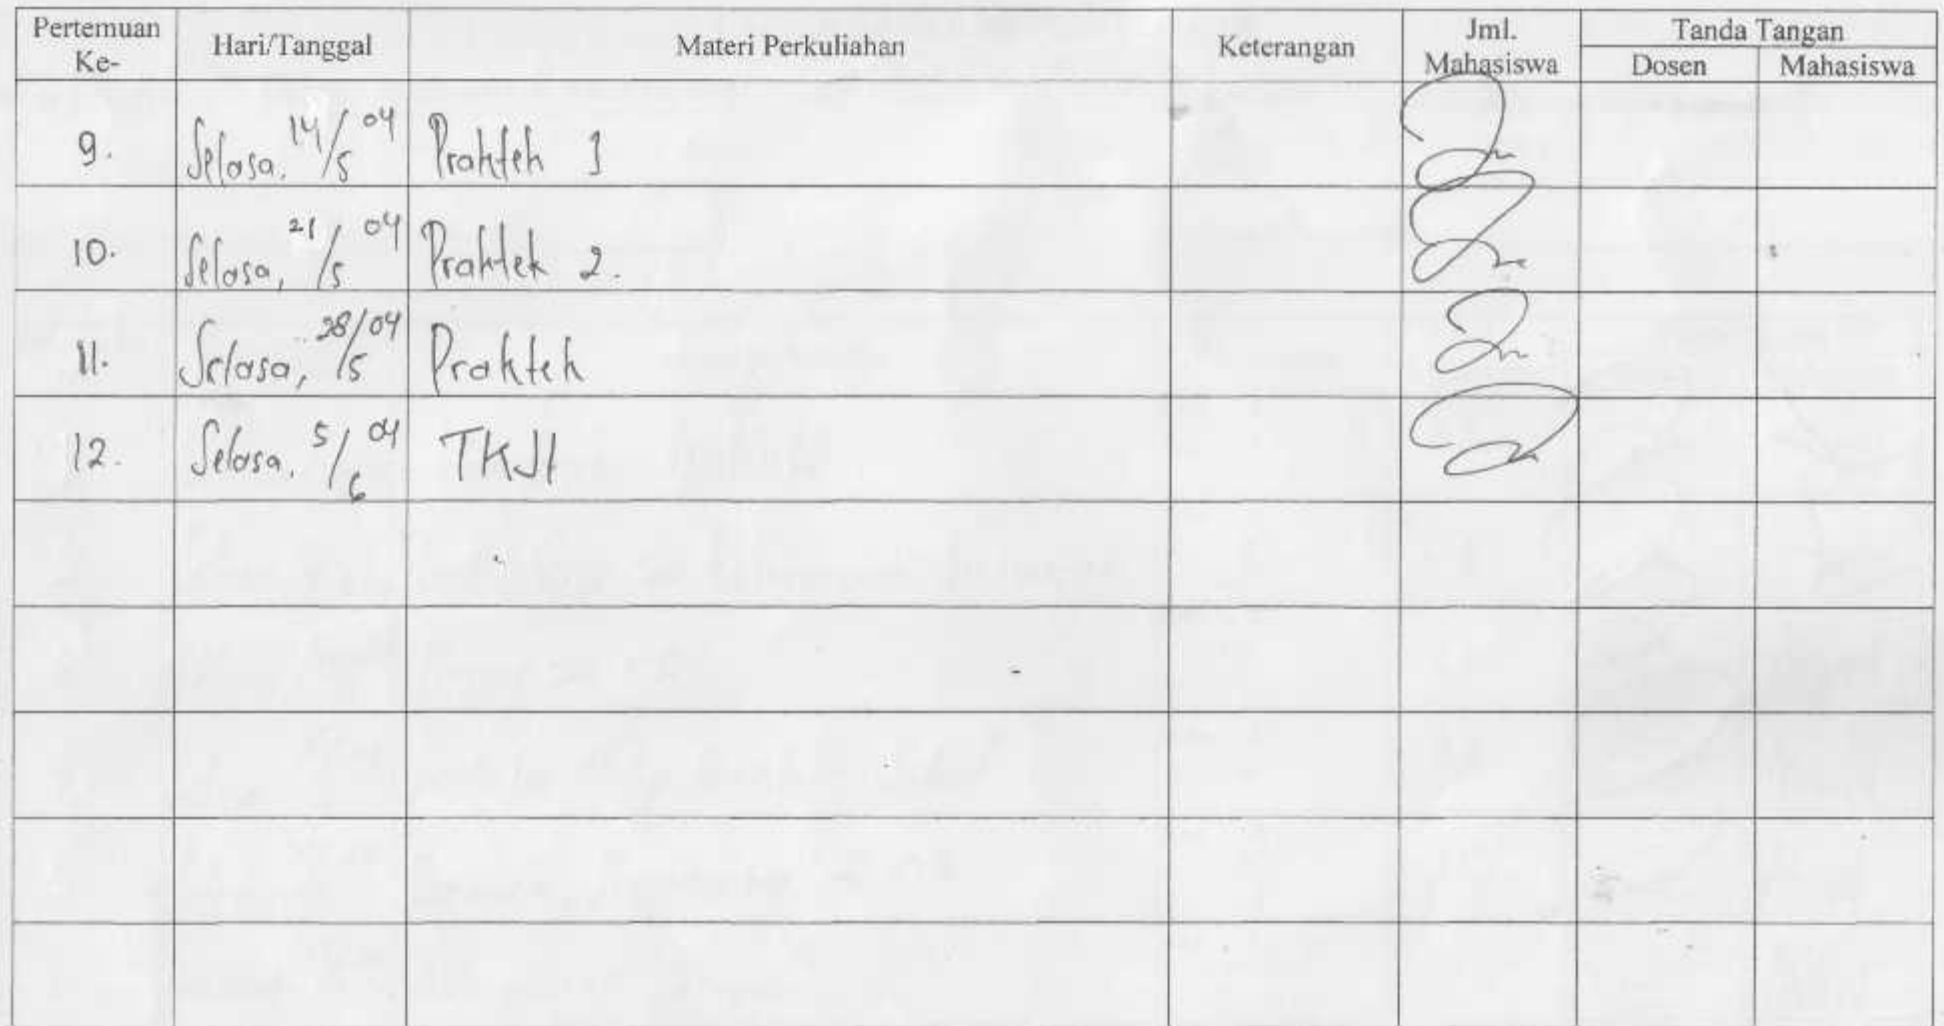 Pertemuan Ke- Hari/Tanggal Materi Perkuliahan Keterangan Jml. Mahasiswa Tanda Tangan
Dosen Mahasiswa
9. Selasa, 14/5 04 Praktek 1
10. Selasa, 21/5 04 Praktek 2.
11. Selasa, 28/5 04 Praktek
12. Selasa, 5/6 04 TKJI